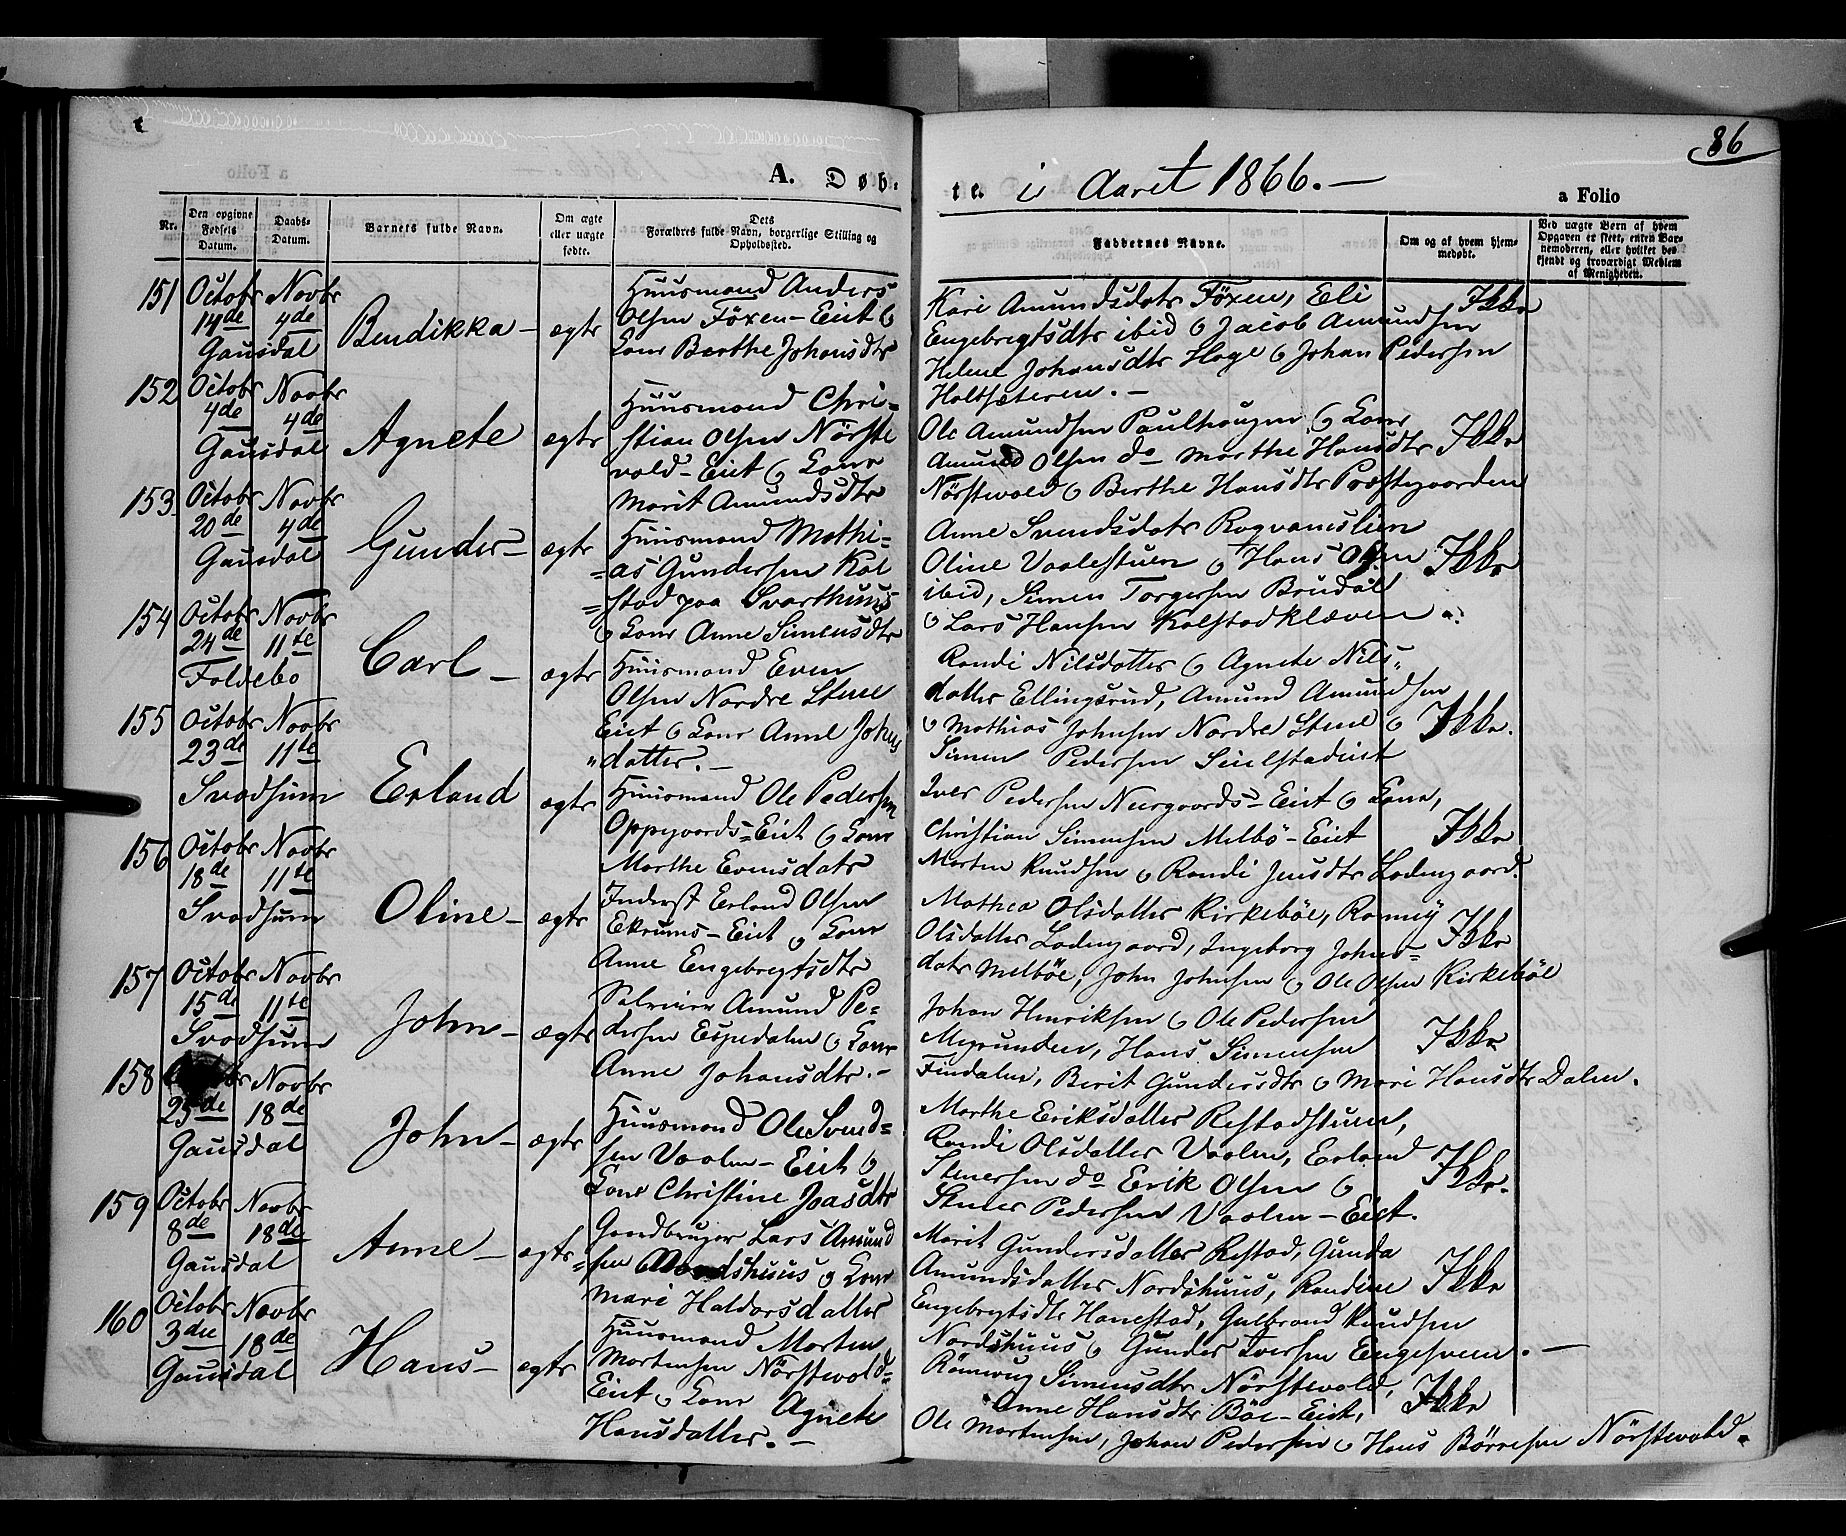 86
A. Døb-
te i Aaret 1866. —
a Folio
Nr.
Den opgivne Fødsels Datum.
Daabs-Datum.
Barnets fulde Navn.
Om ægte eller uægte fødte.
Dets Forældres fulde Navn, borgerlige Stilling og Opholdssted.
Faddernes Navne.
Om og af hvem hjemmedøbt.
Ved uægte Børn af hvem Opgaven er skeet, enten Barnemoderen, eller hvilket bekjendt og troværdigt Medlem af Menigheden.
151 Octobr 14de Novbr 4de Gausdal
Bendikka — ægte
Huusmand Anders
Olsen Föxen-Eiet &
Kone Berthe Johansdtr
Kari Amundsdatr Föxen, Eli
Engebregtsdtr ibid & Jacob Amundsen
Helene Johansdtr Hage & Johan Pedersen
Holtsæteren. —
Ikke
152 Octobr 4de Novbr 4de Gausdal
Agnete ægte
Huusmand Chri-
stian Olsen Nörste
vold-Eiet & Kone
Marit Amundsdtr
Ole Amundsen Paulhaugen & Kone
Amund Olsen do Marthe Hansdtr
Nörstevold & Berthe Hansdtr Præstegaarden
Ikke
153 Octobr 20de Novbr 4de Gausdal
Gunder — ægte
Huusmand Mathi-
as Gundersen Kal
stad paa Svarthuus
& Kone Anne Simensdtr
Anne Svendsdatr Rogvamslien
Oline Vaalestuen & Hans Olsen
ibid, Simen Torgersen Brudal
& Lars Hansen Kalstadkleven.
Ikke
154 Octobr 24de Novbr 11te Foldebo
Carl — ægte
Huusmand Even
Olsen Nordre Stene
Eiet & Kone Anne Johns
datter. —
Randi Nilsdatter & Agnete Nils-
datter Ellingsrud, Amund Amundsen
& Mathias Johnsen Nordre Stene &
Simen Pedersen
Ikke.
155 Octobr 23de Novbr 11te Svadsum
Erland ægte
Huusmand Ole Pedersen
Oppegaards-Eiet & Kone
Marthe Evensdatr
Iver Pedersen Neergaards-Eiet & Kone,
Christian Simensen Melbö-Eiet
Morten Knudsen & Randi Jensdtr Ladengaard.
Ikke
156 Octobr 18de Novbr 11te Svadsum
Oline — ægte
Inderst Erland Olsen
Ekrums-Eiet & Kone
Anne Engebregtsdtr
Mathea Olsdatter Kirkeböe, Ronnuÿ
Olsdatter Ladengaard, Ingeborg Johns-
datr Melböe, John Johnsen & Ole Olsen Kirkeböe
Ikke
157 Octobr 15de Novbr 11te Svadsum
John — ægte
Selveier Amund Pe-
dersen Espedalen & Kone
Anne Johansdtr. —
Johan Henriksen & Ole Pedersen
Myrunden, Hans Simensen
Findalen, Berit Gundersdtr & Mari Hansdtr Dalen.
Ikke
158 25de Novbr 18de Gausdal
John — ægte
Huusmand Ole Svend-
sen Vaalen-Eiet &
Kone Christine Joasdtr
Marthe Eriksdatter Restadstuen,
Randi Olsdatter Vaalen, Erland
Stenersen do Erik Olsen &
Stener Pedersen Vaalen-Eiet.
Ikke.
159 Octobr 8de Novbr 18de Gausdal
Anne — ægte
Gaardbruger Lars Amund
sen Nordshuus & Kone
Mari Haldorsdatter
Marit Gundersdatter Restad, Gunda
Amundsdatter Nordshuus, Randine
Engebregtsdtr Hanestad, Gulbrand Knudsen
Nordshuus & Gunder Iversen Engesveen. —
Ikke
160 Octobr 3die Novbr 18de Gausdal
Hans — ægte
Huusmand Morten
Mortensen Nörstevold-
Eiet & Kone Agnete
Hansdatter. —
Rönnaug Simensdtr Nörstevold,
Anne Hansdtr Böe-Eiet,
Ole Mortensen, Johan Pedersen & Hans Börresen Nörstevold.
Ikke